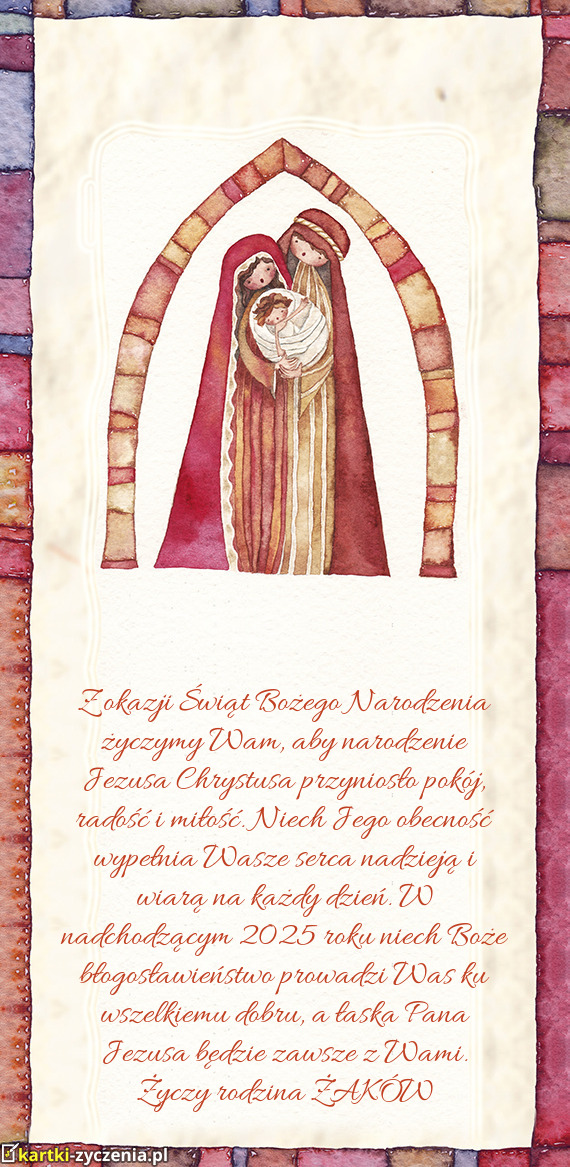 Z okazji Świąt Bożego Narodzenia
życzymy Wam, aby narodzenie
Jezusa Chrystusa przyniosło pokój,
radość i miłość. Niech Jego obecność
wypełnia Wasze serca nadzieją i
wiarą na każdy dzień. W
nadchodzącym 2025 roku niech Boże
błogosławieństwo prowadzi Was ku
wszelkiemu dobru, a łaska Pana
Jezusa będzie zawsze z Wami.
Życzy rodzina ŻAKÓW
kartki-zyczenia.pl